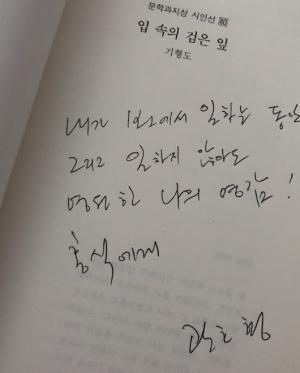 문학과지성 시인선 80
입 속의 검은 잎
기형도
내가 일하는 동안
그리고 일하지 않아도
영원한 나의 영감!
홍식에게